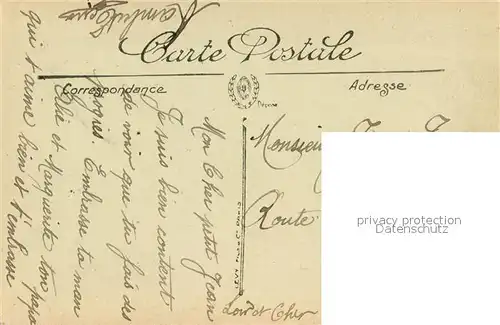 Carte Postale
Correspondance
Adresse
Mon Cher petit Jean
Je suis bien content
de voir que tu fais des
progres. Embrasse ta man
et Marguerite ton papa
qui t'aime bien et t'embrasse
Monsieur
Route
Loir et Cher
privacy protection
Datenschutz